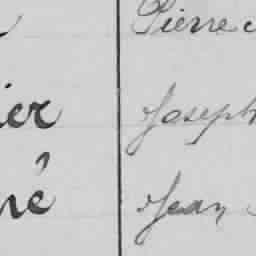 Pierre
ier Joseph
né Jean